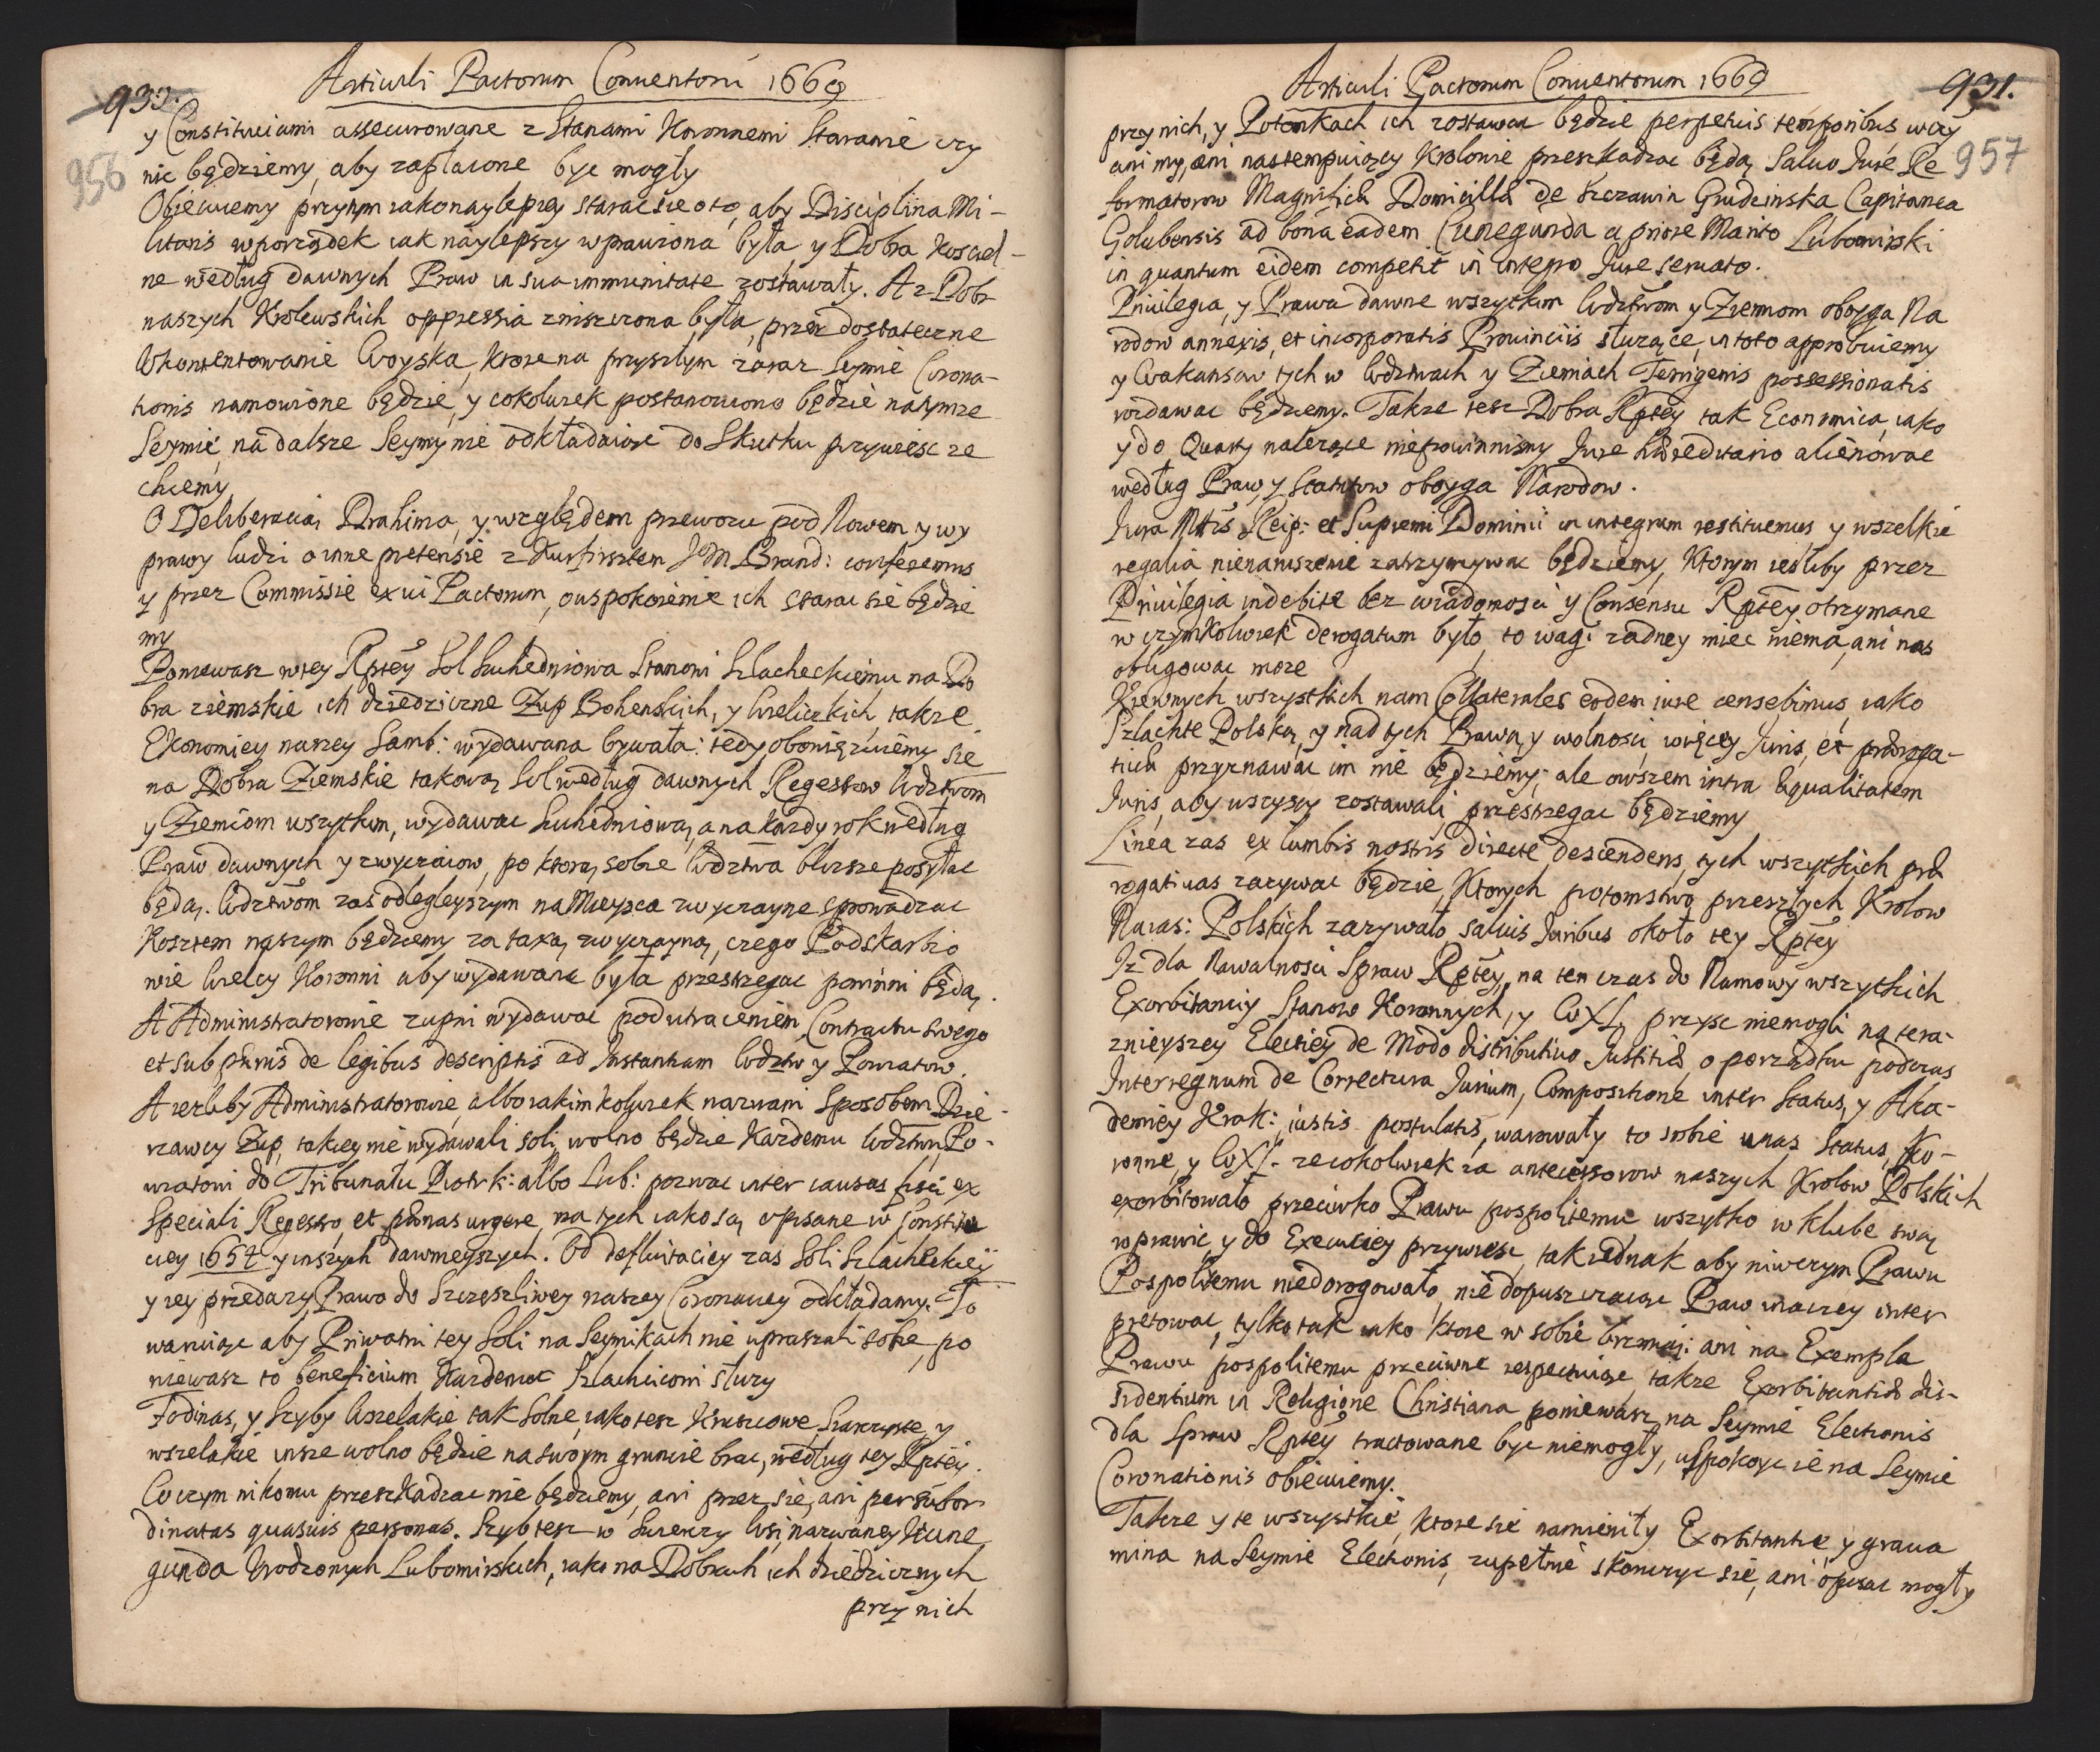 930.
Articuli Pactorum Conventorũ 1669
956
y Constituciami assecurowane z Stanami Koronnemi Staranie czy
nic będziemy, aby zapłacone byc mogły
Obiecuiemy przytym iako naylepiey starac sie o to, aby Disciplina Mi-
litaris w porządek iak naylepszy wprawiona była, y Dobra Kosciel-
ne według dawnych Praw in sua immunitate zostawały. A z Dobr
naszych Krolewskich oppressia zniszczona była, przez dostateczne
Ukontentowanie Woyska, ktore na przyszłym zaraz Seymie Corona-
tionis namowione będzie, y cokolwiek postanowiono będzie na tymze
Seymie, na dalsze Seymy nie odkładaiąc do Skutku przywiesc ze
chcemy
O Deliberacią Drahima, y względem przewozu pod Nowem y wy
prawy ludzi o inne pretensie z Kurfirsztem JeM Brand: conferemus
y przez Commissie ex vi Pactorum, o uspokoienie ich starac sie będzie
my
Poniewasz w tey Rptey Sol Suchedniowa Stanowi Szlacheckiemu na Do
bra ziemskie ich dziedziczne Zup Bohenskich, y Wieliczkich, takze
Ekonomiey naszey Samb: wydawana bywała: tedy obowięzuiemy sie
na Dobra Ziemskie takową Sol według dawnych Regestrow Wdztwom
y Ziemiom wszytkim, wydawac Suchedniową, a na kazdy rok według
Praw dawnych y zwyczaiow, po ktorą sobie Wdztwa blizsze posyłac
będą. Wdztwom zas odlegleyszym na Mieysca zwyczayne sprowadzac
Kosztem naszym będziemy za taxą zwyczayną, czego Podskarbio
wie Wielcy Koronni aby wydawana była przestrzegac powinni będą.
A Administratorowie zupni wydawac pod utraceniem Contractu swego
et sub pænis de legibus descriptis ad Instantiam Wdztw y Powiatow.
A iezliby Administratorowie, albo iakim kolwiek nazwani Sposobem Dzie-
rzawcy Zup, takiey nie wydawali soli, wolno będzie Kazdemu Wdztwu, Po-
wiatowi do Tribunału Piotrk: albo Lub: pozwac inter causas fisci ex
Speciali Regestro, et pænas urgere, na tych iako są opisane w Constitu
ciey 1654 y inszych dawnieyszych. Od defluitaciey zas Soli Szlacheckiey
y iey przedazy Prawo do Szczęszliwey naszey Coronaciey odkładamy. To
waruiąc aby Priwatni tey Soli na Seymikach nie upraszali sobie, po
niewasz to beneficium Kazdemu Szlachcicowi słuzy
Fodinas, y Szyby Wszelakie tak Solne, iako tesz Kruszcowe, Siarczyste, y
wszelakie insze wolno będzie na swoym gruncie brac, według tey Rptey.
W czym nikomu przeszkadzac nie będziemy, ani przez sie, ani per subor
dinatas quasvis personas. Szyb tesz w Sierczy Wsi, nazwaney Kune
gunda Urodzonych Lubomirskich, iako na Dobrach ich dziedzicznych,
przy nich
Articuli Pactorum Conventorum 1669
931.
957
przy nich, y Potomkach ich zostawac będzie perpetuis temporibus, w czy
ani my, ani nastempuiący Krolowie przeszkadzac będą, Salvo Jure Re
formatorow Magnificæ Domicillæ de Szczawin Grudzinska Capitanea
Golubensis ad bona eadem Cunegunda a priore Marito Lubomirski
in quantum eidem competit in integro Jure servato.
Privilegia, y Prawa dawne wszytkim Wdztwom y Ziemiom oboyga Na
rodow annexis, et incorporatis Provinciis słuzące, in toto approbuiemy
y Wakansow tych w Wdztwach y Ziemiach Terrigenis possessionatis
rozdawac będziemy. Takze tesz Dobra Rptey tak Economica, iako
y do Quarty nalezące niepowinnismy Jure hæreditario alienowac
według Praw, y Statutow oboyga Narodow.
Jura Mttis Reip: et Supremi Dominii in integrum restituemus y wszelkie
regalia nienaruszenie zatrzymywac będziemy, Ktorym iesliby przez
Privilegia indebite bez wiadomosci y Consensu Rptey otrzymane
w czymkolwiek derogatum było, to wagi zadney miec niema, ani nas
obligowac moze
Krewnych wszystkich nam Collaterales eodem iure censebimus, iako
Szlachte Polską, y nad tych Prawa, y wolnosci, więcey Juris, et præroga-
tiuæ przyznawac im nie będziemy; ale owszem intra Æqualitatem
Juris, aby wszyscy zostawali przestrzegac będziemy
Linea zas ex lumbis nostris directe descendens, tych wszytkich præ
rogativas zazywac będzie, Ktorych potomstwo przeszłych Krolow
Naias: Polskich zazywało, salvis Juribus około tey Rptey
Iz dla Nawalnosci Spraw Rptey, na ten czas do Namowy wszytkich
Exorbitanciy Stanow Koronnych, y WXL, przyisc niemogli na tera-
znieyszey Electiey de Modo distributivæ Justitiæ, o porządku podczas
Interregnum de Correctura Jurium, Compositione inter Status, y Aka-
demiey Krak:, iustis postulatis, warowały to sobie u nas Status, Ko-
ronne, y WXL. ze cokolwiek za antecessorow naszych Krolow Polskich
exorbitowało przeciwko Prawu pospolitemu wszytko w klube swą
wprawic, y do Executiey przywiesc, tak iednak aby niwczym Prawu
Pospolitemu niedorogowało, nie dopuszczaiąc Praw inaczey inter
pretowac, tylko tak iako ktore w sobie brzmią: ani na Exempla
Prawu pospolitemu przeciwne respectuiąc, takze Exorbitantiæ dis-
sidentium in Religione Christiana poniewasz na Seymie Electionis
dla Spraw Rptey tractowane byc niemogły, uspokoyc ie na Seymie
Coronationis obiecuiemy.
Takze y te wszystkie, ktore sie namieniły Exorbitantie, y grava
mina na Seymie Electionis, zupełnie skonczyc sie, ani opisac mogły